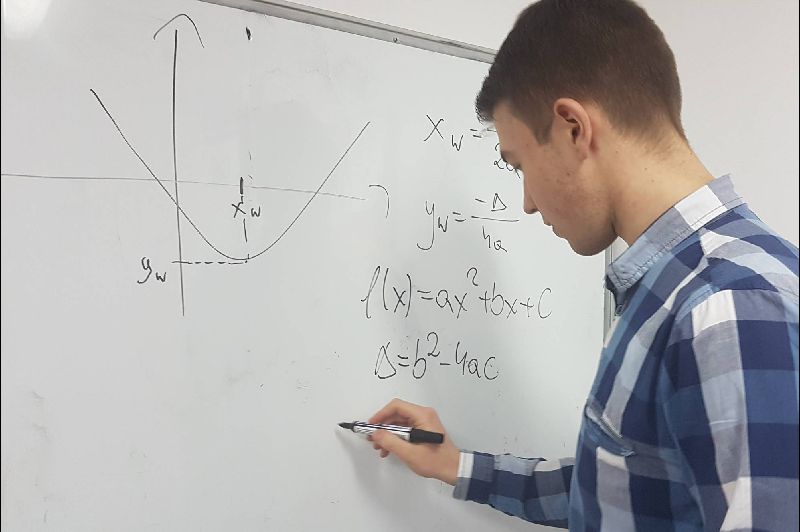 x_w
y_w
x_w = 2a
y_w = -Δ/4a
f(x)=ax²+bx+c
Δ=b²-4ac